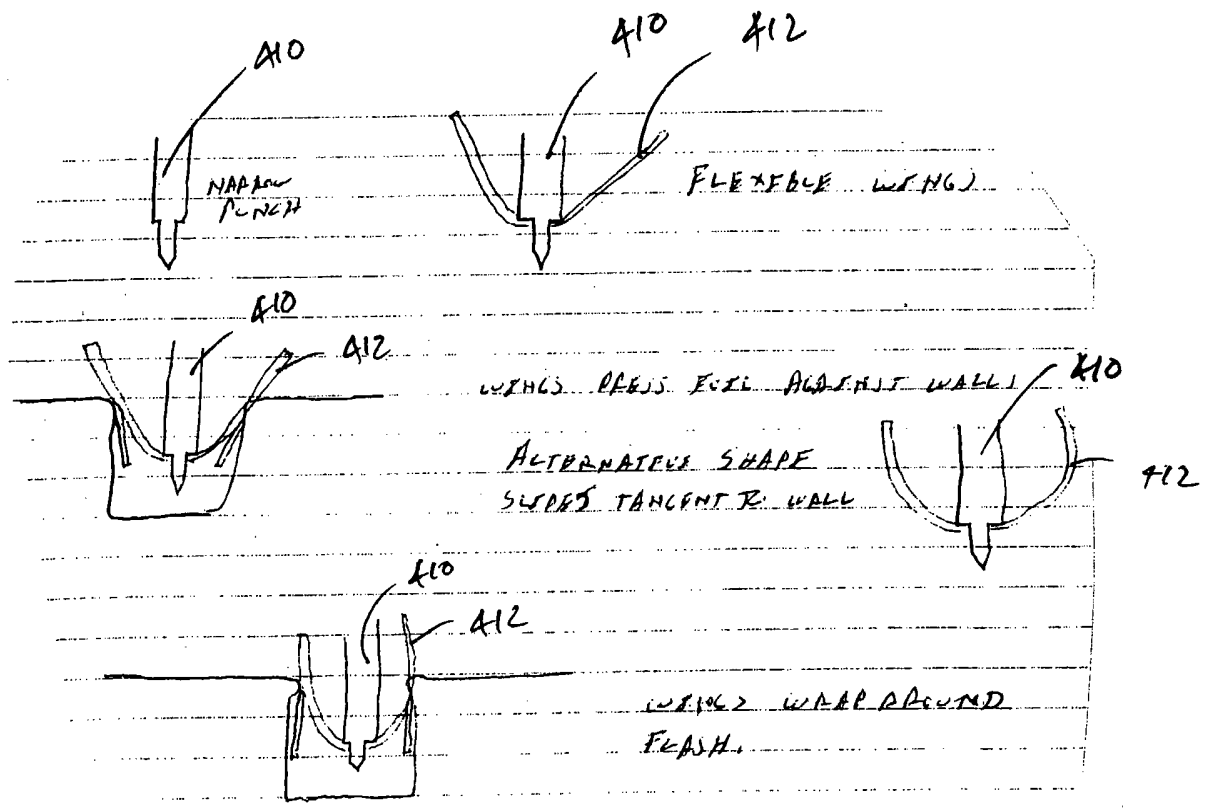 410
410 412
NARROW
PUNCH
FLEXIBLE WINGS
410
412
WINGS PRESS FOIL AGAINST WALLS
410
ALTERNATIVE SHAPE
SLIDES TANGENT TO WALL
412
410
412
WINGS WRAP AROUND
FLASH.